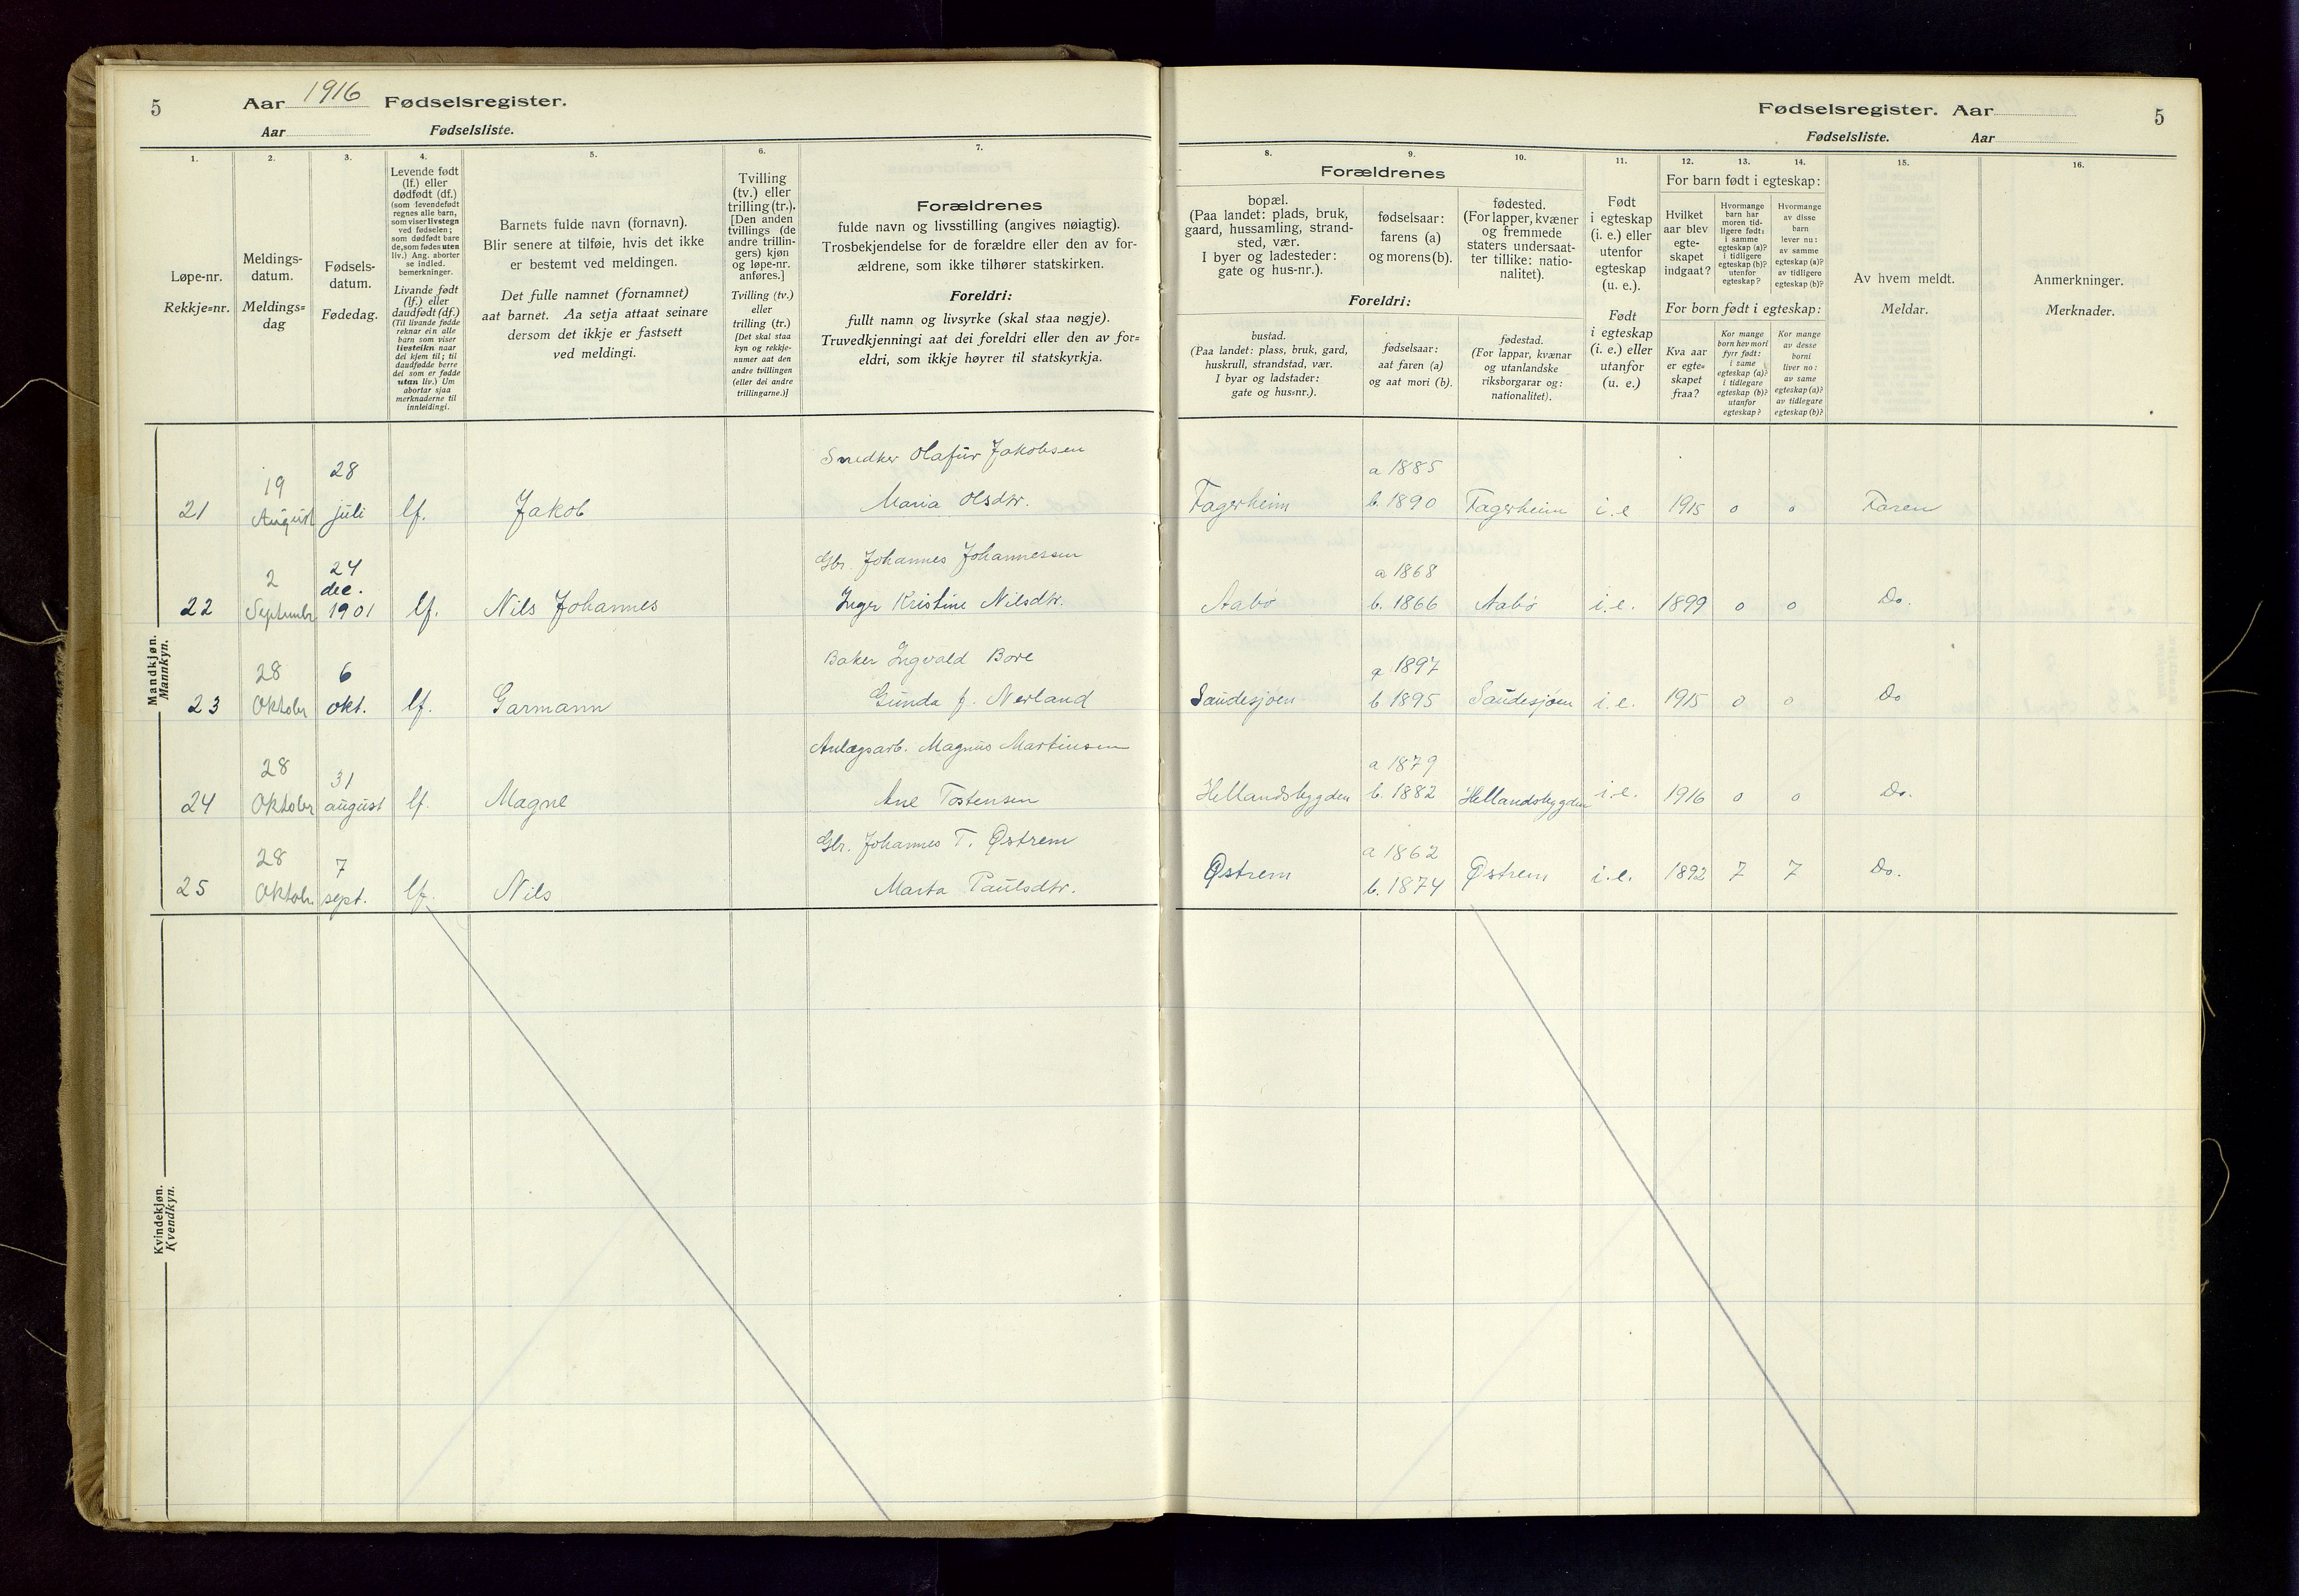 5 Aar 1916 Fødselsregister.
Aar Fødselsliste.
1. 2. 3. 4. 5. 6. 7.
Løpe-nr.
Rekkje=nr.
Meldings-
datum.
Meldings=
dag
Fødsels-
datum.
Fødedag.
Levende født
(lf.) eller
dødfødt (df.)
(som levendefødt
regnes alle barn,
som viser livstegn
ved fødselen;
som dødfødt bare
de, som fødes uten
liv.) Ang. aborter
se indled.
bemerkninger.
Livande født
(lf.) eller
daudfødt (df.)
(Til livande fødde
reknar ein alle
barn som viser
livsteikn naar
dei kjem til; til
daudfødde berre
dei som er fødde
utan liv.) Um
abortar sjaa
merknaderne til
innleidingi.
Barnets fulde navn (fornavn).
Blir senere at tilføie, hvis det ikke
er bestemt ved meldingen.
Det fulle namnet (fornamnet)
aat barnet. Aa setja attaat seinare
dersom det ikkje er fastsett
ved meldingi.
Tvilling
(tv.) eller
trilling (tr.).
[Den anden
tvillings (de
andre trillin-
gers) kjøn
og løpe-nr.
anføres.]
Tvilling (tv.)
eller
trilling (tr.)
[Det skal staa
kyn og rekkje-
nummer aat den
andre tvillingen
(eller dei andre
trillingarne.)]
Forældrenes
fulde navn og livsstilling (angives nøiagtig).
Trosbekjendelse for de forældre eller den av for-
ældrene, som ikke tilhører statskirken.
Foreldri:
fullt namn og livsyrke (skal staa nøgje).
Truvedkjenningi aat dei foreldri eller den av for=
eldri, som ikkje høyrer til statskyrkja.
Mandkjøn.
Mannkyn.
Snedker Olafur Jakobsen
21 19 August 28 juli lf. Jakob Maria Olsdtr.
Gbr. Johannes Johannessen
22 2 Septembr 24 dec. 1901 lf. Nils Johannes Inger Kristine Nilsdtr.
Baker Ingvald Bore
23 28 Oktober 6 okt. lf. Garmann Gunda f. Nerland
Anlægsarb. Magnus Martinsen
24 28 Oktober 31 august lf. Magne Ane Tostensen
Gbr. Johannes T. Østrem
25 28 Oktob. 7 sept. lf. Nils Marta Paulsdtr.
Kvindekjøn.
Kvendkyn.
Fødselsregister. Aar 5
Fødselsliste. Aar
8. 9. 10. 11. 12. 13. 14. 15. 16.
Forældrenes
bopæl.
(Paa landet: plads, bruk,
gaard, hussamling, strand-
sted, vær.
I byer og ladesteder:
gate og hus-nr.).
fødselsaar:
farens (a)
og morens (b).
fødested.
(For lapper, kvæner
og fremmede
staters undersaat-
ter tillike: natio-
nalitet).
Foreldri:
bustad.
(Paa landet: plass, bruk, gard,
huskrull, strandstad, vær.
I byar og ladstader:
gate og hus=nr.).
fødselsaar:
aat faren (a)
og aat mori (b).
fødestad.
(For lappar, kvænar
og utanlandske
riksborgarar og:
nationalitet).
Født
i egteskap
(i. e.) eller
utenfor
egteskap
(u. e.).
Født
i egteskap
(i. e.) eller
utanfor
(u. e.)
For barn født i egteskap:
Hvilket
aar blev
egte-
skapet
indgaat?
Hvormange
barn har
moren tid-
ligere født:
i samme
egteskap (a)?
i tidligere
egteskap (b)?
utenfor
egteskap?
Hvormange
av disse
barn
lever nu:
av samme
egteskap (a)?
av tidligere
egteskap (b)?
For born født i egteskap:
Kva aar
er egte=
skapet
fraa?
Kor mange
born hev mori
fyrr født:
i same
egteskap (a)?
i tidlegare
egteskap (b)?
utanfor
egteskap?
Kor mange
av desse
borni
liver no:
av same
egteskap (a)?
av tidlegare
egteskap (b)?
Av hvem meldt.
Meldar.
Anmerkninger.
Merknader.
a 1885
Fagerheim b. 1890 Fagerheim i.e 1915 0 0 Faren
a 1868
Aabø b. 1866 Aabø i.e. 1899 0 0 Do.
a 1897
Saudesjøen b. 1895 Saudesjøen i.e. 1915 0 0 Do
a 1879
Hellandsbygden b. 1882 Hellandsbygden i.e. 1916 0 0 Do.
a 1862
Østrem b. 1874 Østrem i.e. 1892 7 7 Do.